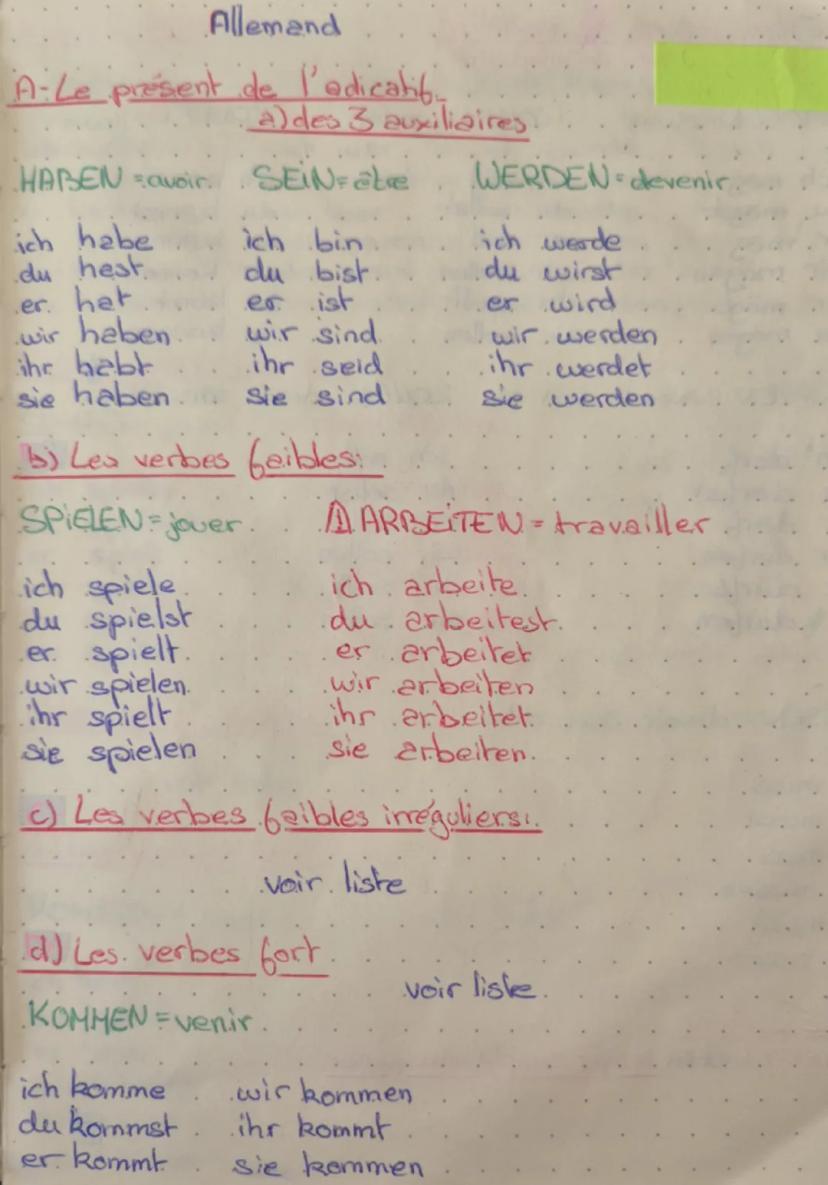 Allemand
A-Le présent de l'adicatif.
a) des 3 auxiliaires
HABEN = avoir SEIN = être WERDEN = devenir
ich habe ich bin ich werde
du hast du bist du wirst
er hat er ist er wird
wir haben wir sind wir werden
ihr habt ihr seid ihr werdet
sie haben sie sind sie werden
b) Les verbes faibles:
SPIELEN = jouer ⚠ ARBEITEN = travailler
ich spiele ich arbeite
du spielst du arbeitest
er spielt er arbeitet
wir spielen wir arbeiten
ihr spielt ihr arbeitet
sie spielen sie arbeiten
c) Les verbes faibles irréguliers:
voir liste
d) Les verbes fort
voir liste
KOMMEN = venir
ich komme wir kommen
du kommst ihr kommt
er kommt sie kommen